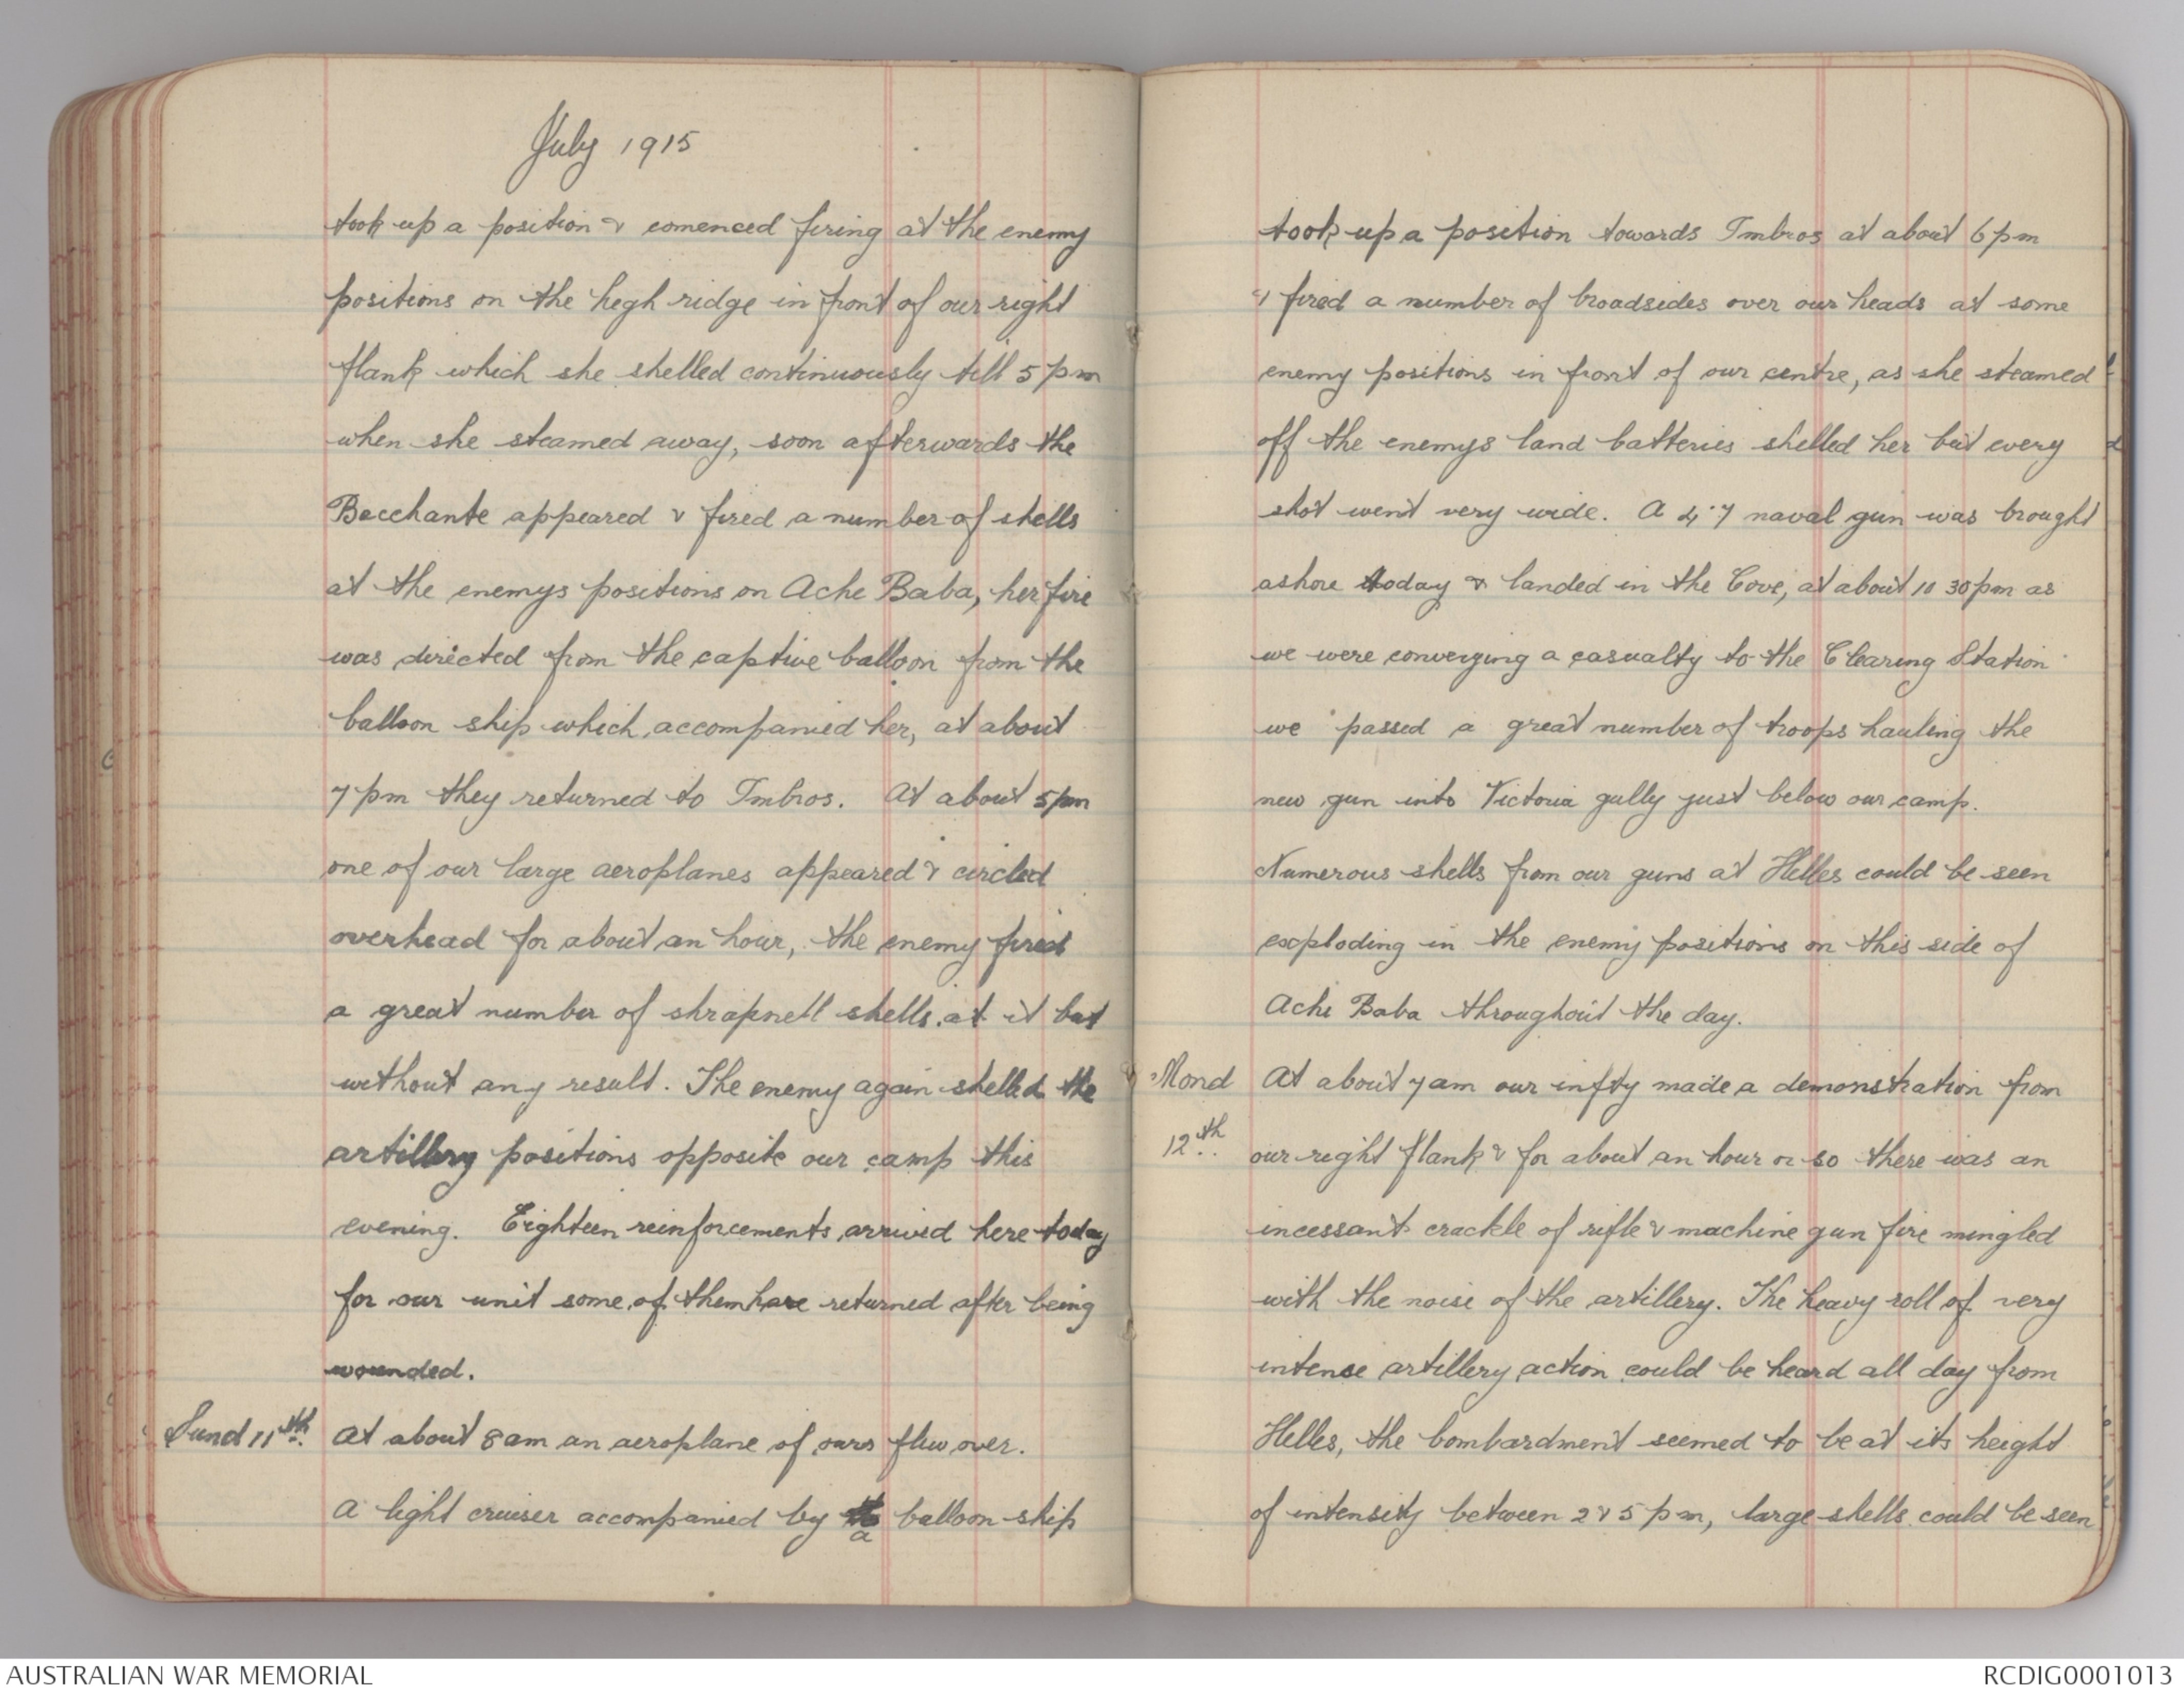 July 1915
took up a position & comenced firing at the enemy
positions on the high ridge in front of our right
flank which she shelled continuously till 5 pm
when she steamed away, soon afterwards the
Bacchante appeared & fired a number of shells
at the enemys positions on Ache Baba, her fire
was directed from the captive balloon from the
balloon ship which accompanied her, at about
7 pm they returned to Imbros. At about 5pm
one of our large aeroplanes appeared & circled
overhead for about an hour, the enemy fired
a great number of shrapnell shells at it but
without any result. The enemy again shelled the
artillery positions opposite our camp this
evening. Eighteen reinforcements arrived here today
for our unit some of them have returned after being
wounded.
Sund 11th. At about 8 am an aeroplane of ours flew over.
A light cruiser accompanied by a balloon ship
took up a position towards Imbros at about 6 pm
& fired a number of broadsides over our heads at some
enemy positions in front of our centre, as she steamed
off the enemys land batteries shelled her but every
shot went very wide. A 4.7 naval gun was brought
ashore today & landed in the Cove, at about 10 30 pm as
we were converging a casualty to the Clearing Station
we passed a great number of troops hauling the
new gun into Victoria gully just below our camp.
Numerous shells from our guns at Helles could be seen
exploding in the enemy positions on this side of
Achi Baba throughout the day.
Mond At about 7 am our infty made a demonstration from
12th.. our right flank & for about an hour or so there was an
incessant crackle of rifle & machine gun fire mingled
with the noise of the artillery. The heavy roll of very
intense artillery action could be heard all day from
Helles, the bombardment seemed to be at its height
of intensity between 2 & 5 pm, large shells could be seen
AUSTRALIAN WAR MEMORIAL
RCDIG0001013